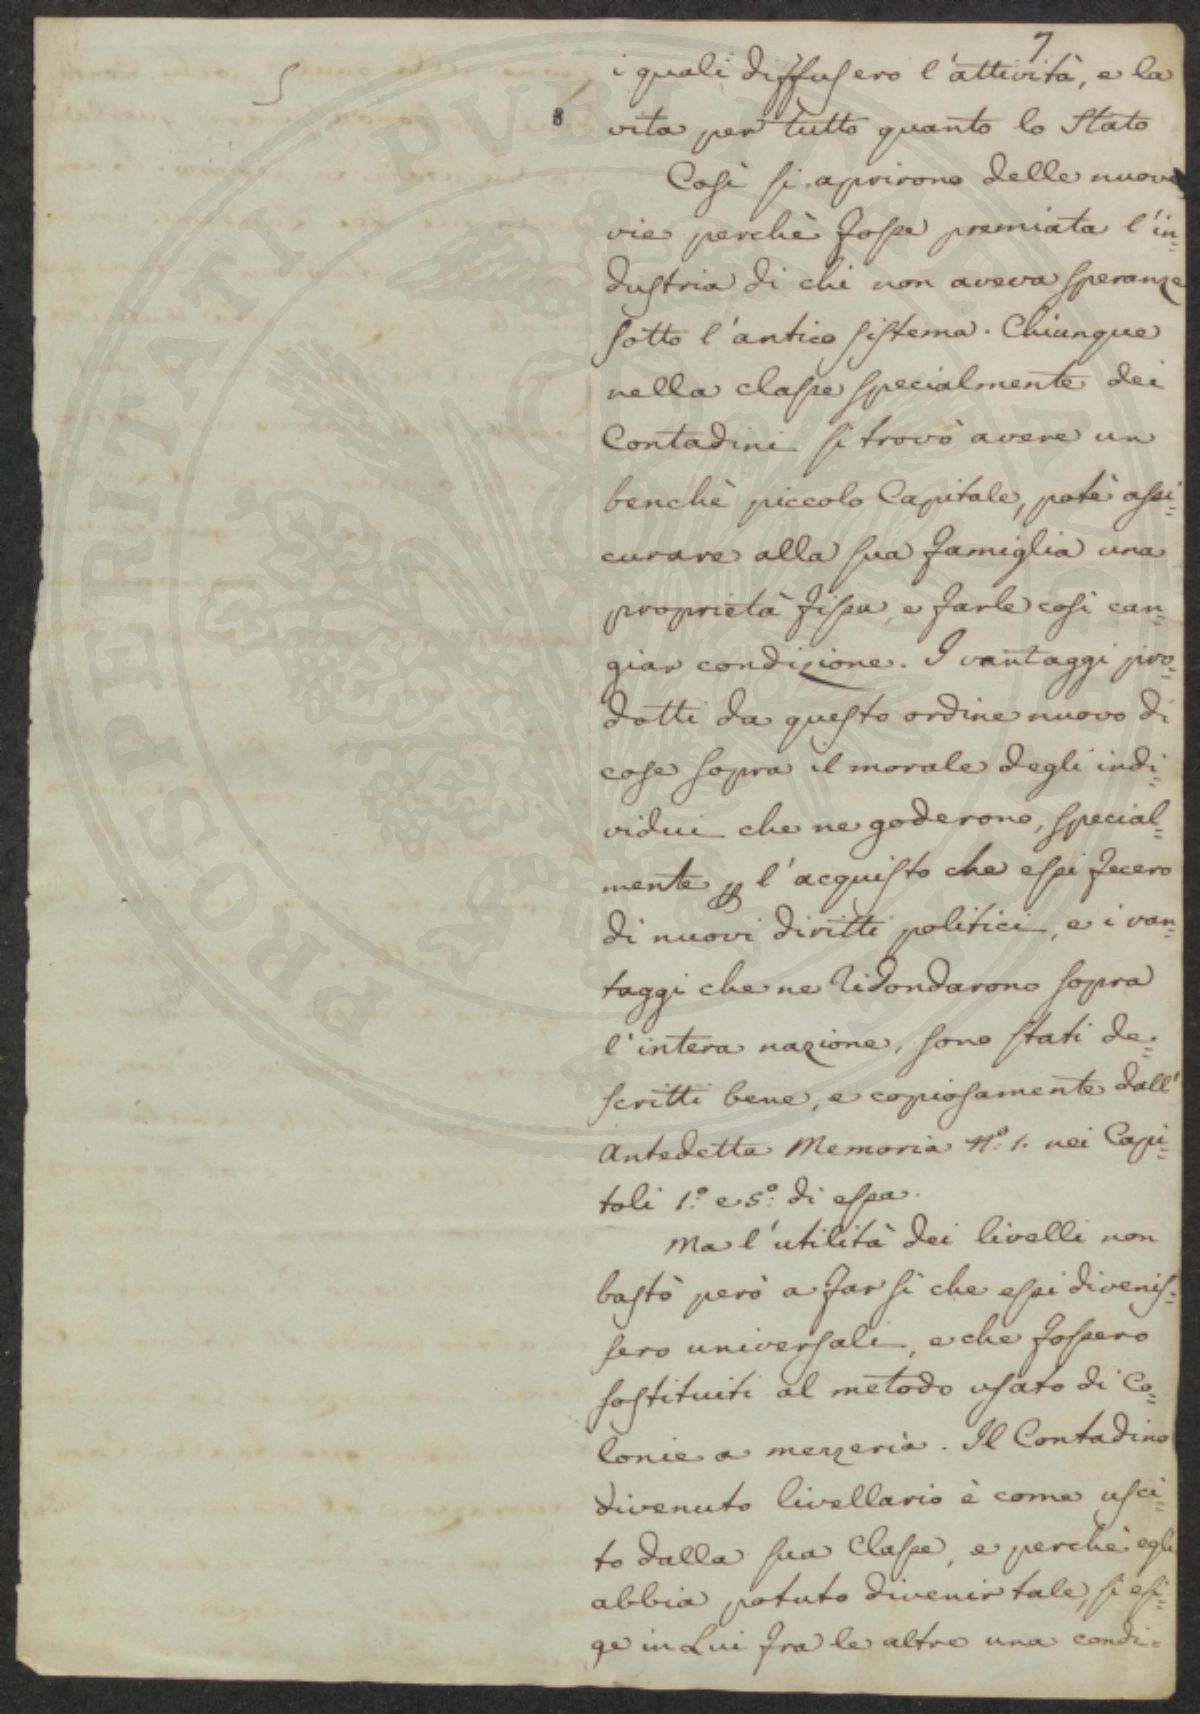 7
8
i quali diffusero l'attività, e la
vita per tutto quanto lo Stato
Così si aprirono delle nuove
vie perchè fosse premiata l'in=
dustria di chi non aveva speranze
sotto l'antico sistema. Chiunque
nella classe specialmente dei
Contadini si trovò avere un
benchè piccolo Capitale, potè assi=
curare alla sua famiglia una
proprietà fissa, e farle così can=
giar condizione. I vantaggi pro=
dotti da questo ordine nuovo di
cose sopra il morale degli indi=
vidui che ne goderono, special=
mente p l'acquisto che essi fecero
di nuovi diritti politici, e i van=
taggi che ne ridondarono sopra
l'intera nazione, sono stati de=
scritti bene, e copiosamente dall'
Antedetta Memoria N.º 1. nei Capi=
toli 1.º e 5.º di essa.
Ma l'utilità dei livelli non
bastò però a far sì che essi divenis=
sero universali, e che fossero
sostituiti al metodo usato di Co=
lonie a mezzeria. Il Contadino
divenuto livellario è come usci=
to dalla sua Classe, e perchè egli
abbia potuto divenir tale, si esi=
ge in Lui fra le altre una condi=
PROSPERITATI PUBLICAE